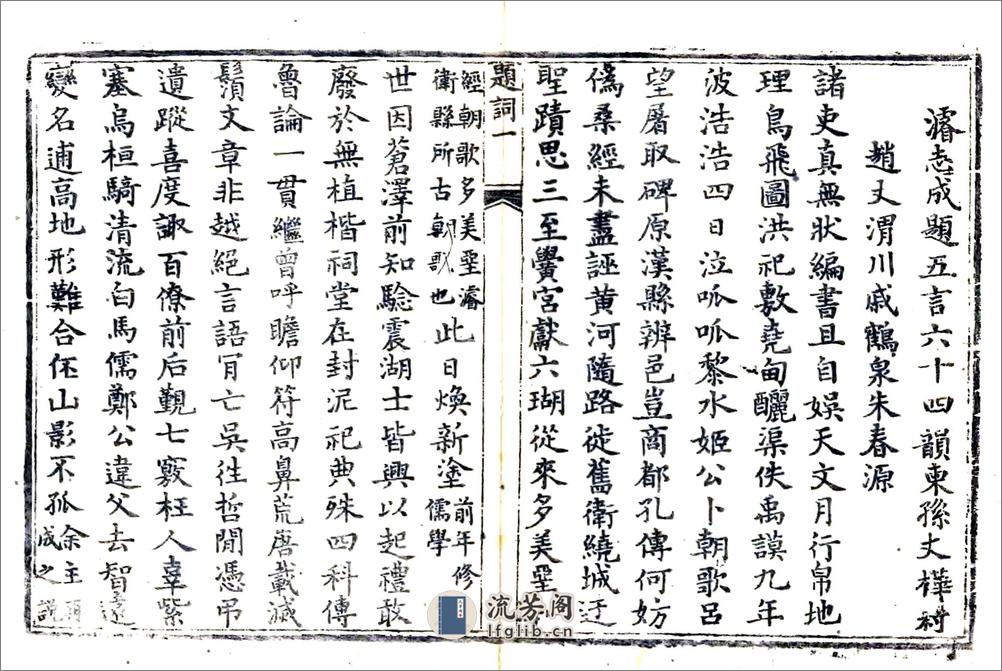 濬志成題五言六十四韻柬孫丈樺村
趙丈渭川戚鶴泉朱春源
諸吏真無狀編書且自娛天文月行帛地
理鳥飛圖洪祀敷堯甸釃渠佚禹謨九年
波浩浩四日泣呱呱黎水姬公卜朝歌呂
望屠取碑原漢縣辨邑豈商都孔傳何妨
偽桑經未盡誣黃河隨路徙舊衛繞城迂
聖蹟思三至黌宮獻六瑚從來多美堊
題詞一
經朝歌多美堊濬
衛縣所古朝歌也此日煥新塗前年修
儒學
世因蒼澤前知驗震湖士皆興以起禮敢
廢於無植楷祠堂在封泥祀典殊四科傳
魯論一貫繼曾呼瞻仰符高鼻荒唐載滅
鬚文章非越絕言語肎亡吳往哲閒憑弔
遺蹤喜度諏百僚前后覲七竅枉人辜紫
塞烏桓騎清流白馬儒鄭公違父去智遠
變名逋高地形難合伾山影不孤余主爾
成之說
流芳阁
lfglib.cn